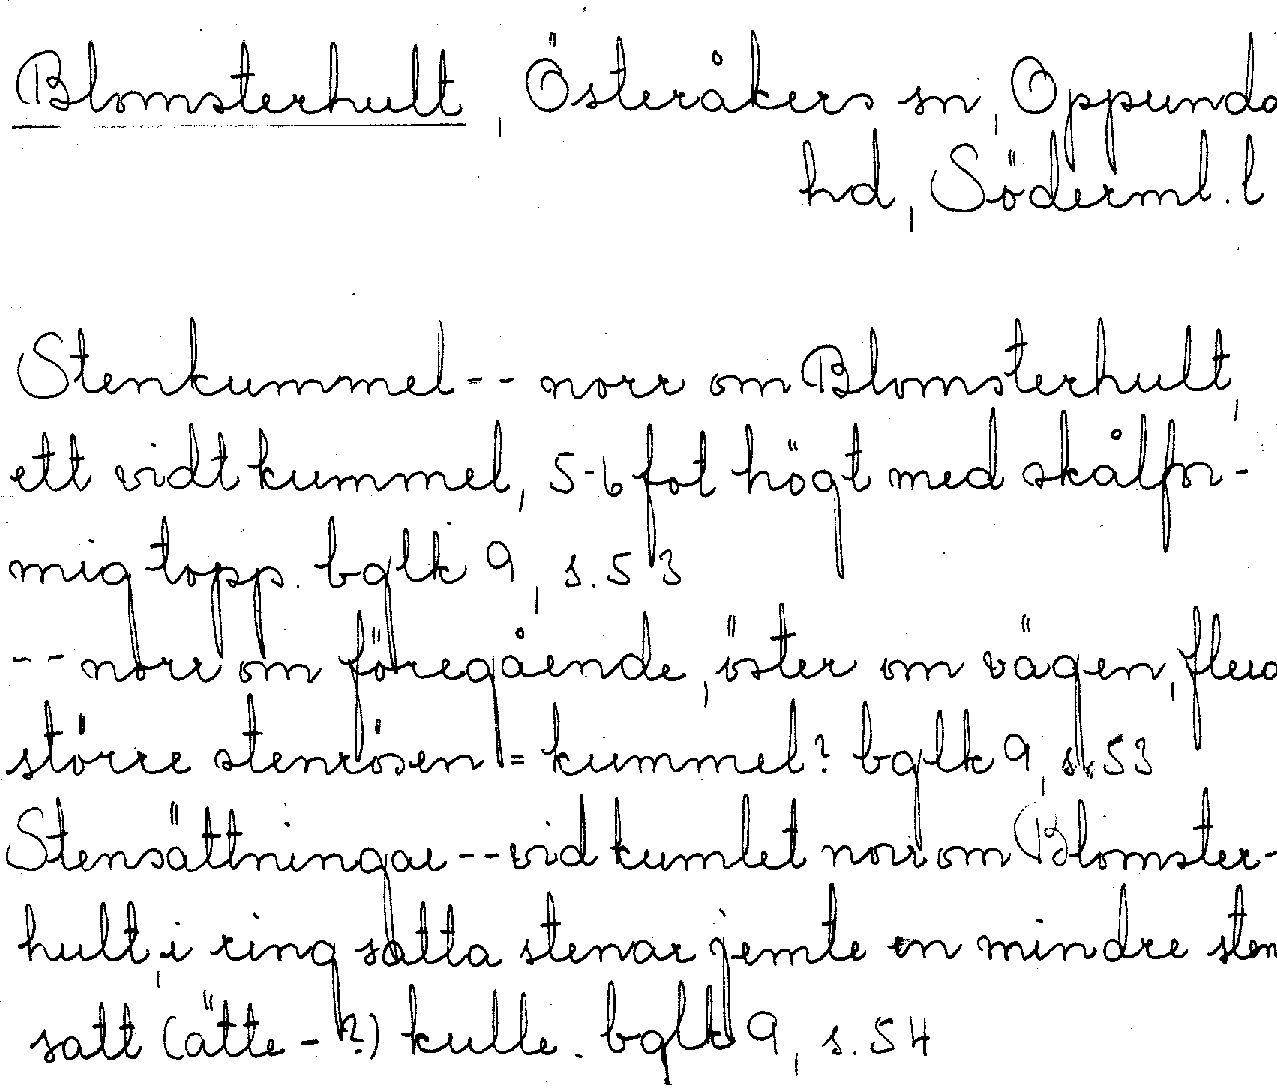 Blomsterhult, Österåkers sn, Oppunda
hd, Söderml. l
Stenkummel -- norr om Blomsterhult,
ett vidt kummel, 5-6 fot högt med skålfor-
mig topp. bglk 9, s. 53
-- norr om föregående, öster om vägen, flera
större stenrösen = kummel? bglk 9, s. 53
Stensättningar -- vid kumlet norr om Blomster-
hult, i ring satta stenar jemte en mindre sten
satt (ätte-?) kulle. bglk 9, s. 54